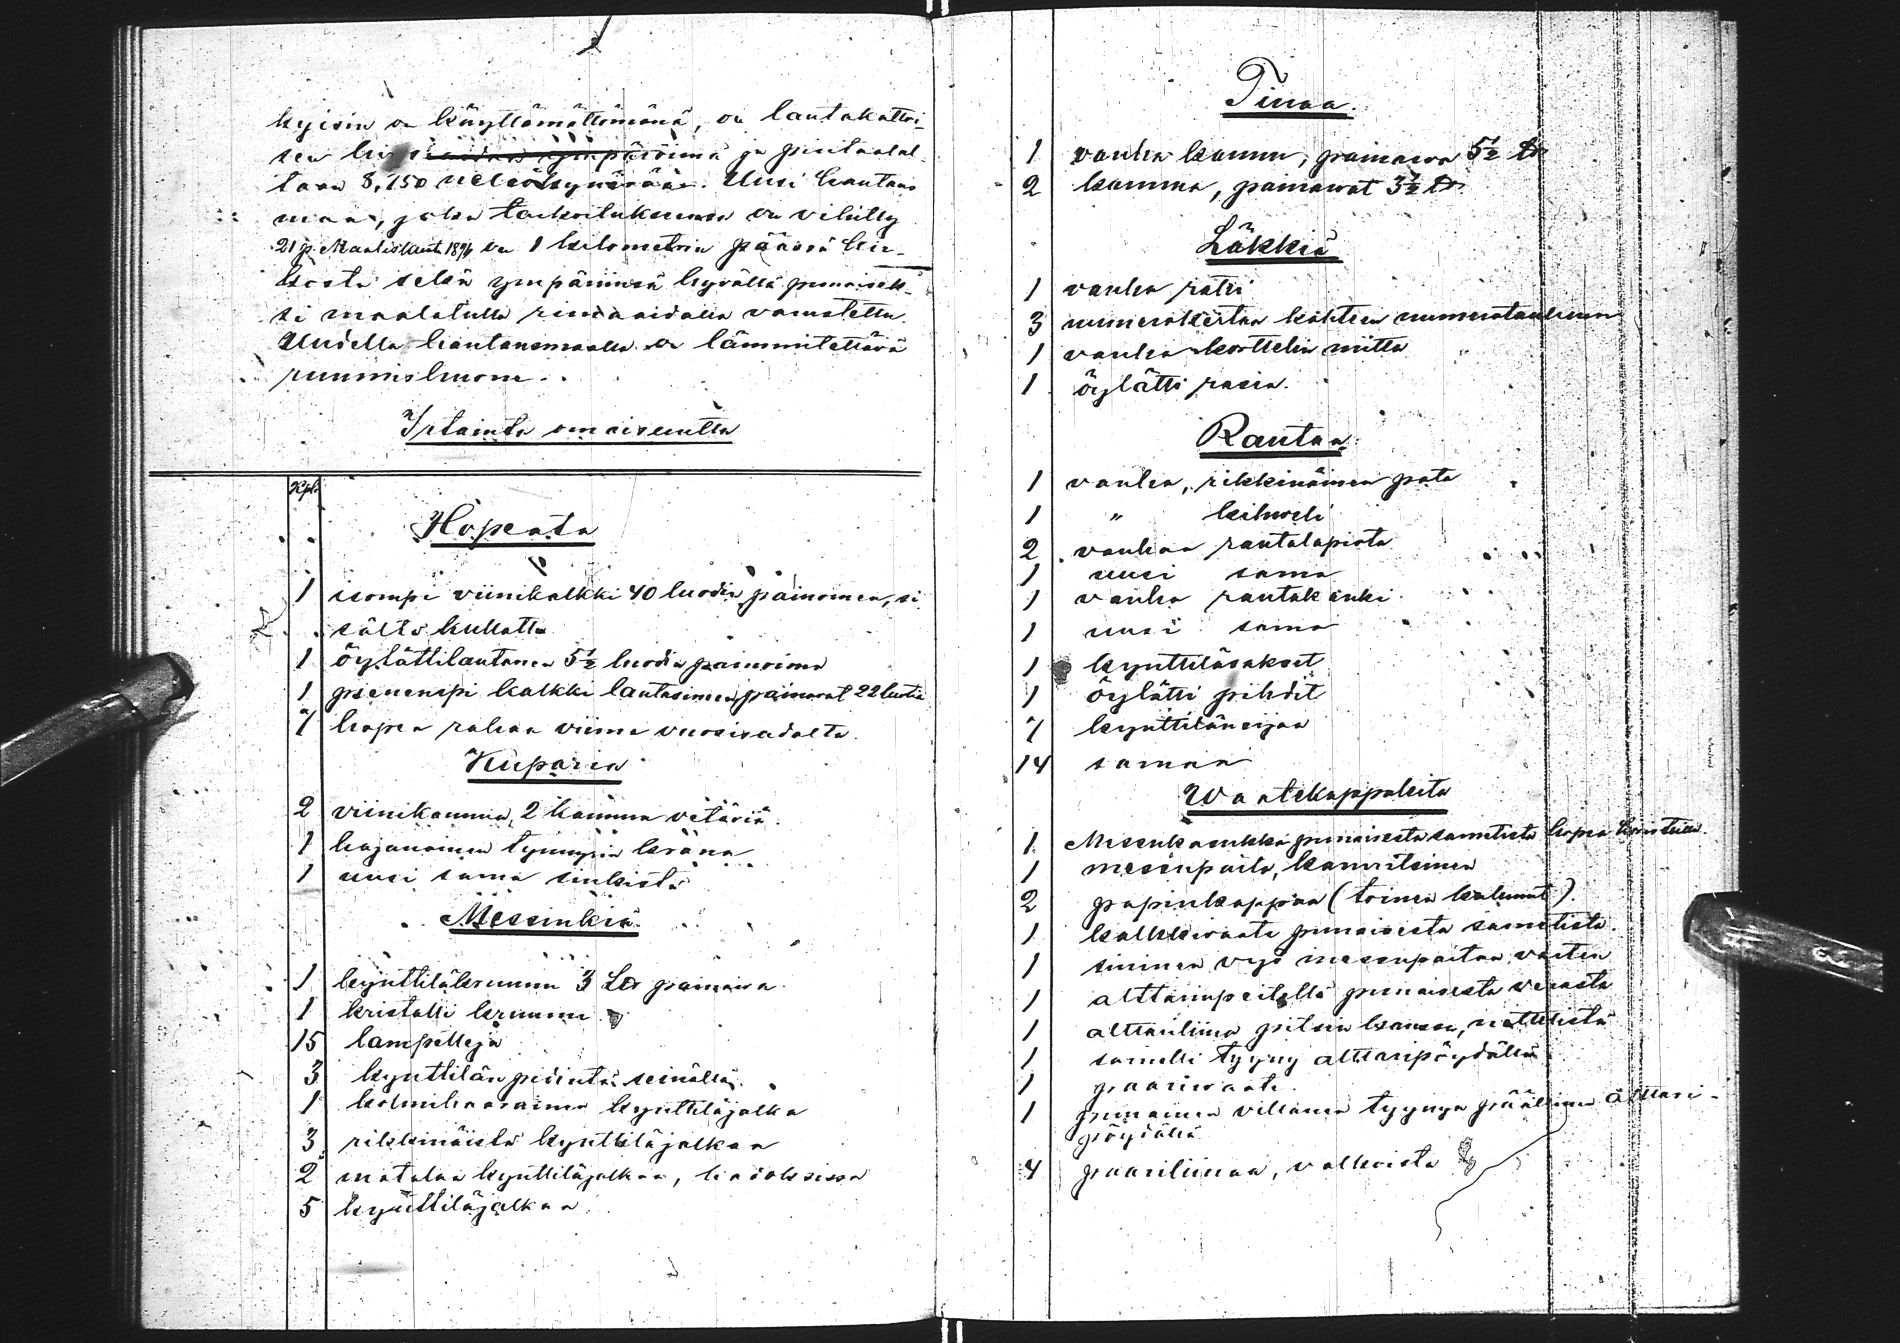 kyisin on käyttämättömänä, on lautakattoi-
sen ympäröimä ja pintaalal-
taan 8,150 neliökyynärää. Uusi hautaus
maa, joka tarkoitukseensa on vihitty
21 p. Maaliskuuta 1896 on 1 kilometrin päässä kir-
kosta sekä ympärinsä hyvällä punaisek-
si maalatulla rimaaidalla varustettu.
Uudella hautausmaalla on lämmitettävä
ruumishuone.
Irtainta omaisuutta
Kpl.
Hopeata
1 isompi viinikalkki 40 luodin painoinen, si
sältä kullattu
1 öylättilautanen 5½ luodin painoinen
1 pienempi kalkki lautasineen, painavat 22 luotia
7 hopea rahaa viime vuosisadalta.
Kuparia
2 viinikannua, 2 kannun vetäviä.
1 hajanainen tynnyrin kraana
1 uusi sama sinkistä
Messinkiä
1 kynttiläkruunu 3 L℔ painava.
1 kristalli kruunu
15 lampetteja
3 kynttilän pidintä seinällä.
1 kolmihaarainen kynttiläjalka
3 rikkinäistä kynttiläjalkaa
2 matalaa kynttiläjalkaa, hajoksissa
5 kynttiläjalkaa.
Tinaa.
1 vanha kannu, painava 5½ ℔
2 kannua, painavat 3½ ℔
Läkkiä
1 vanha ratti
3 numerokertaa kahteen numerotauluun
1 vanha korttelin mitta
1 öylätti rasia.
Rautaa.
1 vanha, rikkinäinen pata
1 " kihveli
2 vanhaa rautalapiota
1 uusi sama
1 vanha rautakanki.
1 uusi sama
1 kynttiläsakset
1 öylätti pihdit
7 kynttilänsijaa
14 samaa
Waatekappaleita
1 Messukasukka punaisesta sametista hopea kristein.
1 messupaita, kamritsinen
2 papinkappaa (toinen kulunut).
1 kalkkivaate punaisesta sametista.
1 sininen vyö messupaitaa varten
1 alttarinpeite punaisesta verasta
1 alttariliina pitsin kanssa, nettelistä
1 sametti tyyny alttaripöydällä
1 paarivaate.
1 punainen villainen tyynyn päällinen alttari-
pöydällä
4 paariliinaa, valkoista